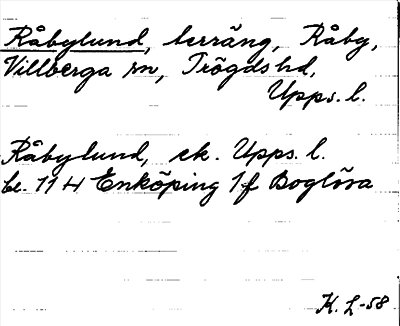 Råbylund, terräng, Råby,
Villberga sn, Trögds hd,
Upps. l.
Råbylund, ek. Upps. l.
bl. 11 H Enköping 1 f Boglösa
K. L-58